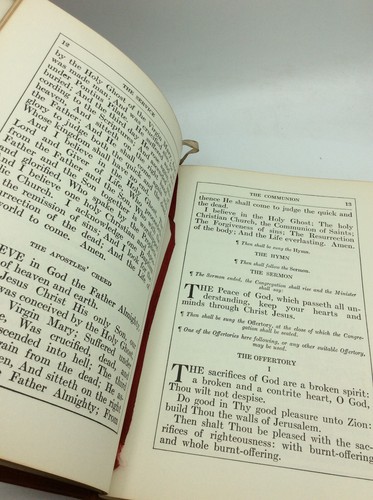 12 THE SERVICE
by the Holy Ghost of the Virgin Mary,
was made man; And was
under Pontius Pilate. He
cording to the Scriptures; And
heaven, And sitteth on the
the Father; And He shall come
glory to judge both the quick
Whose kingdom shall have no end.
And I believe in the Holy Ghost, The
Lord and Giver of Life, Who
from the Father and the Son, Who
Father and the Son together
and glorified, Who spake by the
And I believe one holy Christian
Church. I acknowledge one
the remission of sins; And I look
Resurrection of the dead; And the Life
world to come. Amen.
THE APOSTLES' CREED
BELIEVE in God the Father Almighty,
of heaven and earth.
Jesus Christ His only Son, our
was conceived by the Holy Ghost,
Virgin Mary; Suffered under
Was crucified, dead, and
descended into hell; The third
again from the dead; He as-
And sitteth on the right
Father Almighty; From
THE COMMUNION 13
thence He shall come to judge the quick and
the dead.
I believe in the Holy Ghost; The holy
Christian Church, the Communion of Saints;
The Forgiveness of sins; The Resurrection
of the body; And the Life everlasting. Amen.
¶ Then shall be sung the Hymn.
THE HYMN
¶ Then shall follow the Sermon.
THE SERMON
¶ The Sermon ended, the Congregation shall rise and the Minister
shall say:
THE Peace of God, which passeth all un-
derstanding, keep your hearts and
minds through Christ Jesus.
¶ Then shall be sung the Offertory, at the close of which the Congre-
gation shall be seated.
¶ One of the Offertories here following, or any other suitable Offertory,
may be used.
THE OFFERTORY
I
THE sacrifices of God are a broken spirit:
a broken and a contrite heart, O God,
Thou wilt not despise.
Do good in Thy good pleasure unto Zion:
build Thou the walls of Jerusalem.
Then shalt Thou be pleased with the sac-
rifices of righteousness: with burnt-offering
and whole burnt-offering.